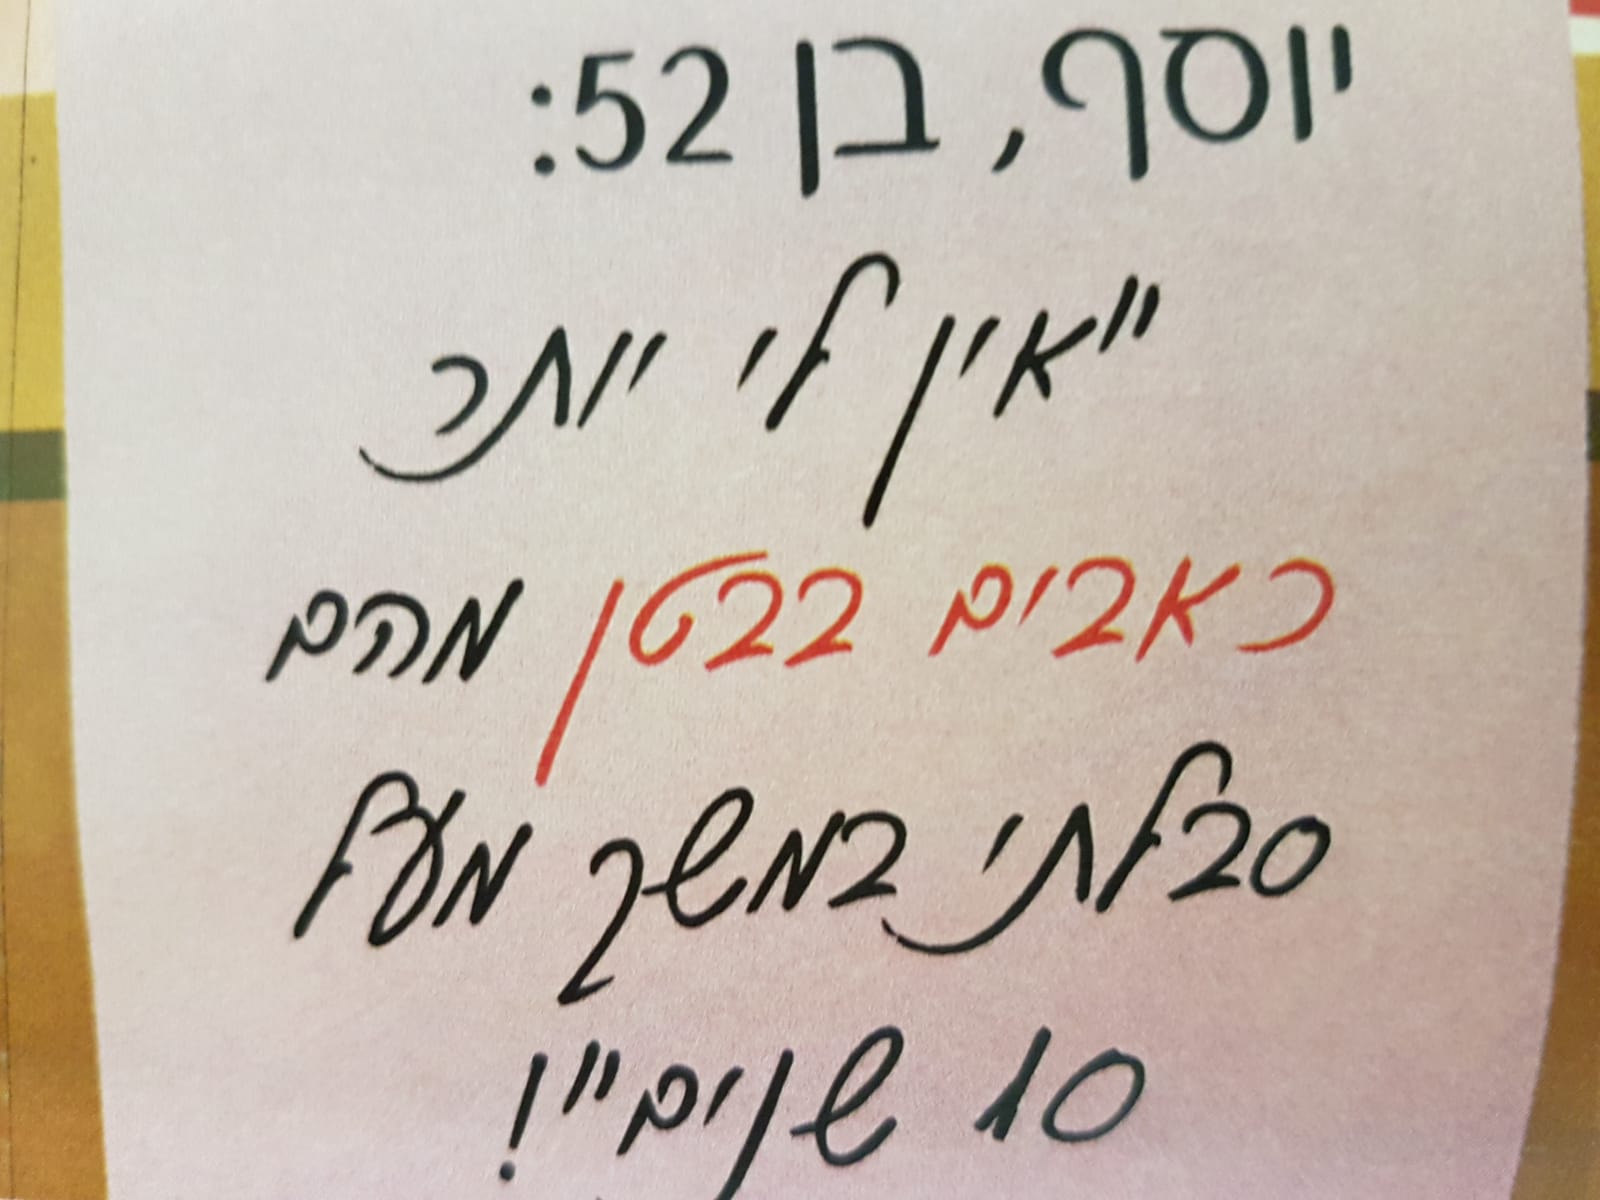 יוסף, בן 52:
"אין לי יותר
כאבים בבטן מהם
סבלתי במשך מעל
10 שנים"!